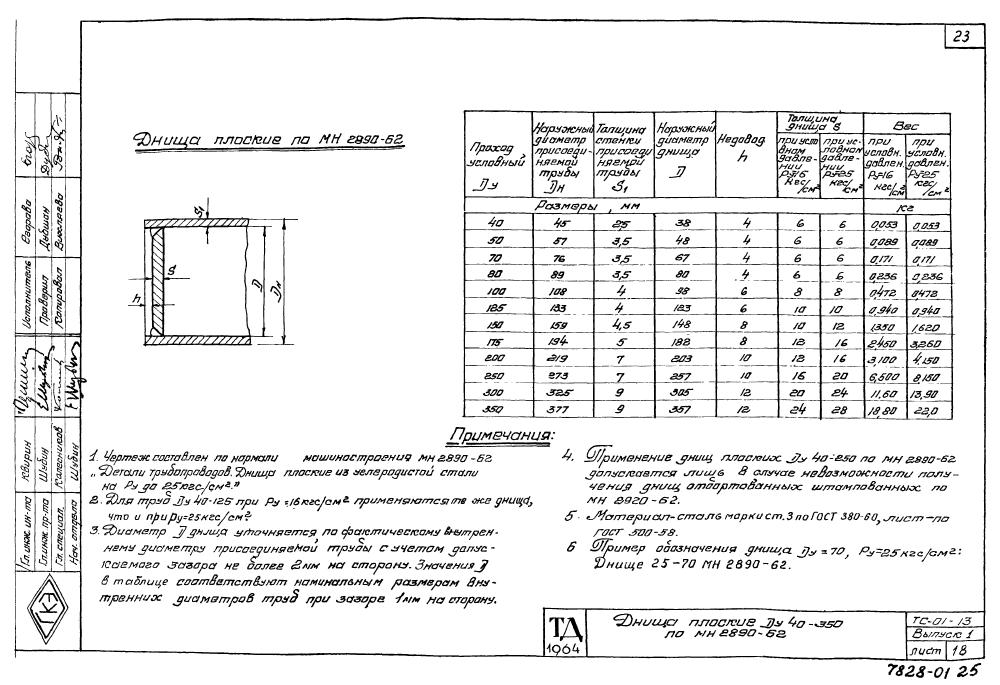 23
Днища плоские по МН 2890-62
Проход условный Ду | Наружный диаметр присоединяемой трубы Дн | Толщина стенки присоединяемой трубы S1 | Наружный диаметр днища Д | Недовод h | Толщина днища S | Вес
при условном давлении Ру=16 кгс/см² | при условном давлении Ру=25 кгс/см² | при условн. давлен. Ру=16 кгс/см² | при условн. давлен. Ру=25 кгс/см²
Размеры, мм | кг
40 | 45 | 2,5 | 38 | 4 | 6 | 6 | 0,053 | 0,053
50 | 57 | 3,5 | 48 | 4 | 6 | 6 | 0,089 | 0,089
70 | 76 | 3,5 | 67 | 4 | 6 | 6 | 0,171 | 0,171
80 | 89 | 3,5 | 80 | 4 | 6 | 6 | 0,236 | 0,236
100 | 108 | 4 | 98 | 6 | 8 | 8 | 0,472 | 0472
125 | 133 | 4 | 123 | 6 | 10 | 10 | 0,940 | 0,940
150 | 159 | 4,5 | 148 | 8 | 10 | 12 | 1350 | 1,620
175 | 194 | 5 | 182 | 8 | 12 | 16 | 2450 | 3,260
200 | 219 | 7 | 203 | 10 | 12 | 16 | 3,100 | 4,150
250 | 273 | 7 | 257 | 10 | 16 | 20 | 6,500 | 8,150
300 | 325 | 9 | 305 | 12 | 20 | 24 | 11,60 | 13,90
350 | 377 | 9 | 357 | 12 | 24 | 28 | 18,80 | 22,0
S1
S
h
Д
Дн
Примечания:
1. Чертеж составлен по нормали машиностроения МН 2890-62
„Детали трубопроводов. Днища плоские из углеродистой стали
на Ру до 25кгс/см²."
2. Для труб Ду 40-125 при Ру=16кгс/см² применяются те же днища,
что и при Ру=25кгс/см².
3. Диаметр Д днища уточняется по фактическому внутрен-
нему диаметру присоединяемой трубы с учетом допус-
каемого зазора не более 2мм на сторону. Значения Д
в таблице соответствуют номинальным размерам вну-
тренних диаметров труб при зазоре 1мм на сторону.
4. Применение днищ плоских Ду 40-250 по МН 2890-62
допускается лишь в случае невозможности полу-
чения днищ отбортованных штампованных по
МН 2920-62.
5. Материал-сталь марки ст. 3 по ГОСТ 380-60, лист-по
ГОСТ 500-58.
6 Пример обозначения днища Ду=70, Ру=25кгс/см²:
Днище 25-70 МН 2890-62.
Исполнитель Егорова
Проверил Дебшан
Копировал
Гл. инж. ин-та Каирин
Гл. инж. пр-та Шубин
Гл. специал. Колесников
Нач. отдела Шубин
ГКЭ
ТД
1964
Днища плоские Ду 40-350
по МН 2890-62
ТС-01-13
Выпуск 1
лист 18
7828-01 25